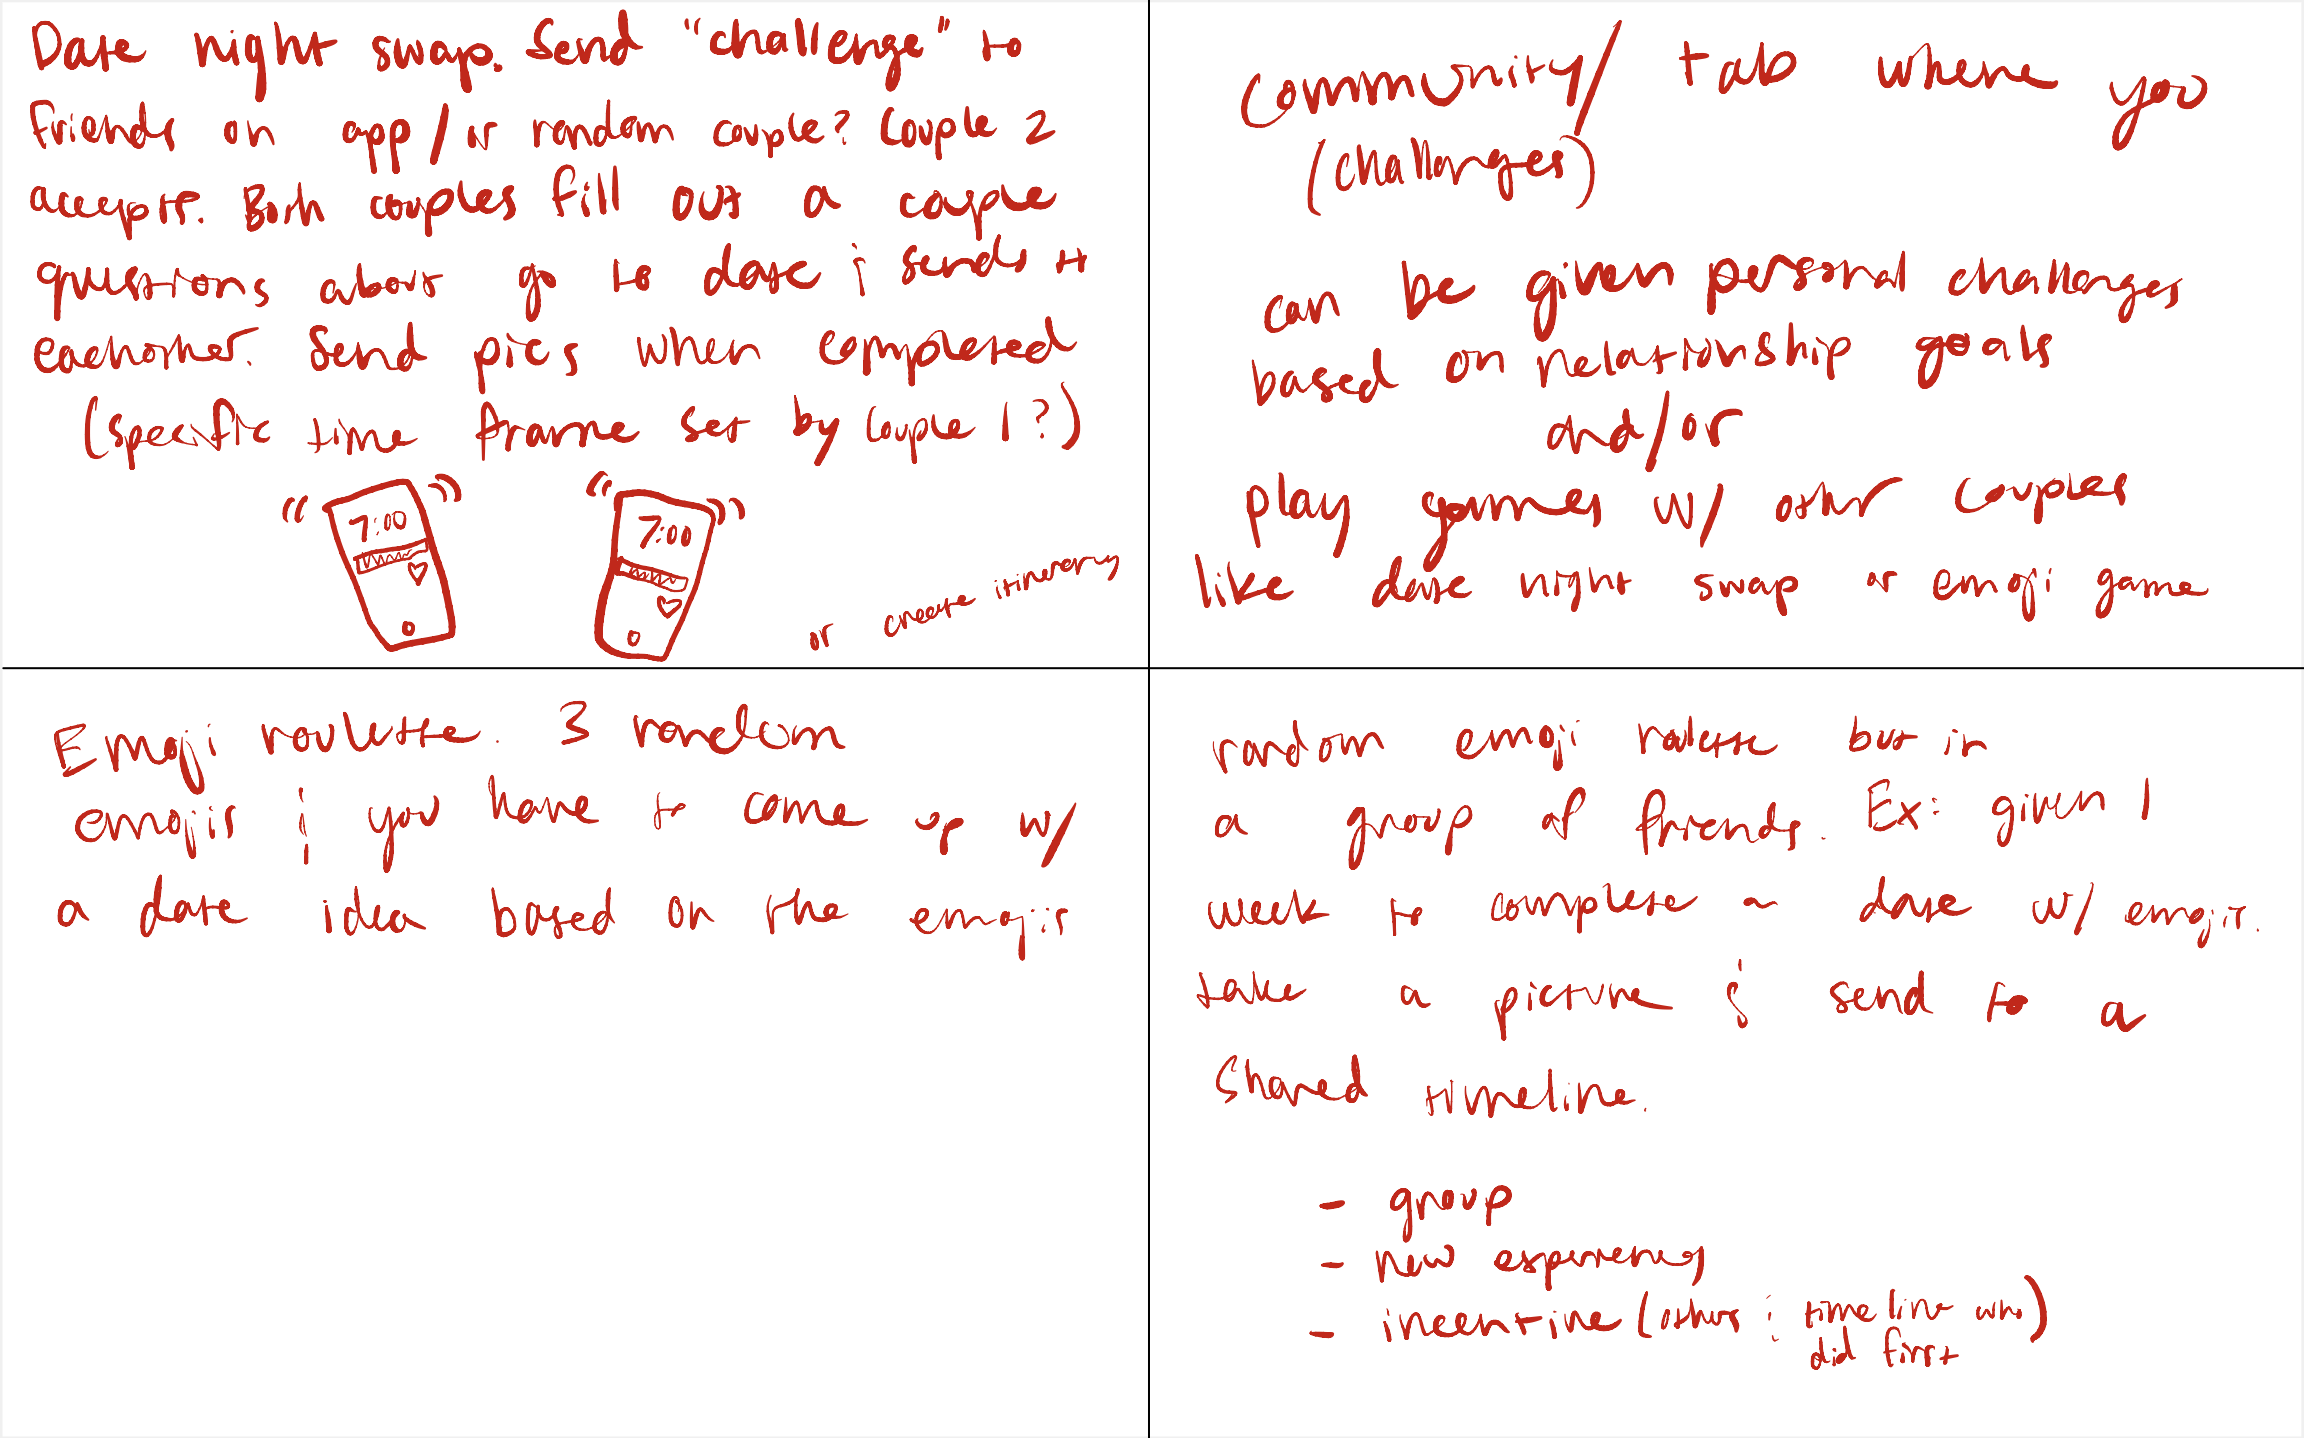 Date night swap. Send "challenge" to
friends on app/or random couple? Couple 2
accepts. Both couples fill out a couple
questions about go to date & sends to
eachother. Send pics when completed
(specific time frame set by couple 1?)
7:00
7:00
or create itinerary
Community/ tab where you
(challenges)
can be given personal challenges
based on relationship goals
and/or
play games w/ other couples
like date night swap or emoji game
Emoji roulette. 3 random
emojis & you have to come up w/
a date idea based on the emojis
random emoji roulette but in
a group of friends. Ex: given 1
week to complete a date w/ emojis.
take a picture & send to a
shared timeline.
- group
- new experiences
- incentive (others & timeline who)
did first